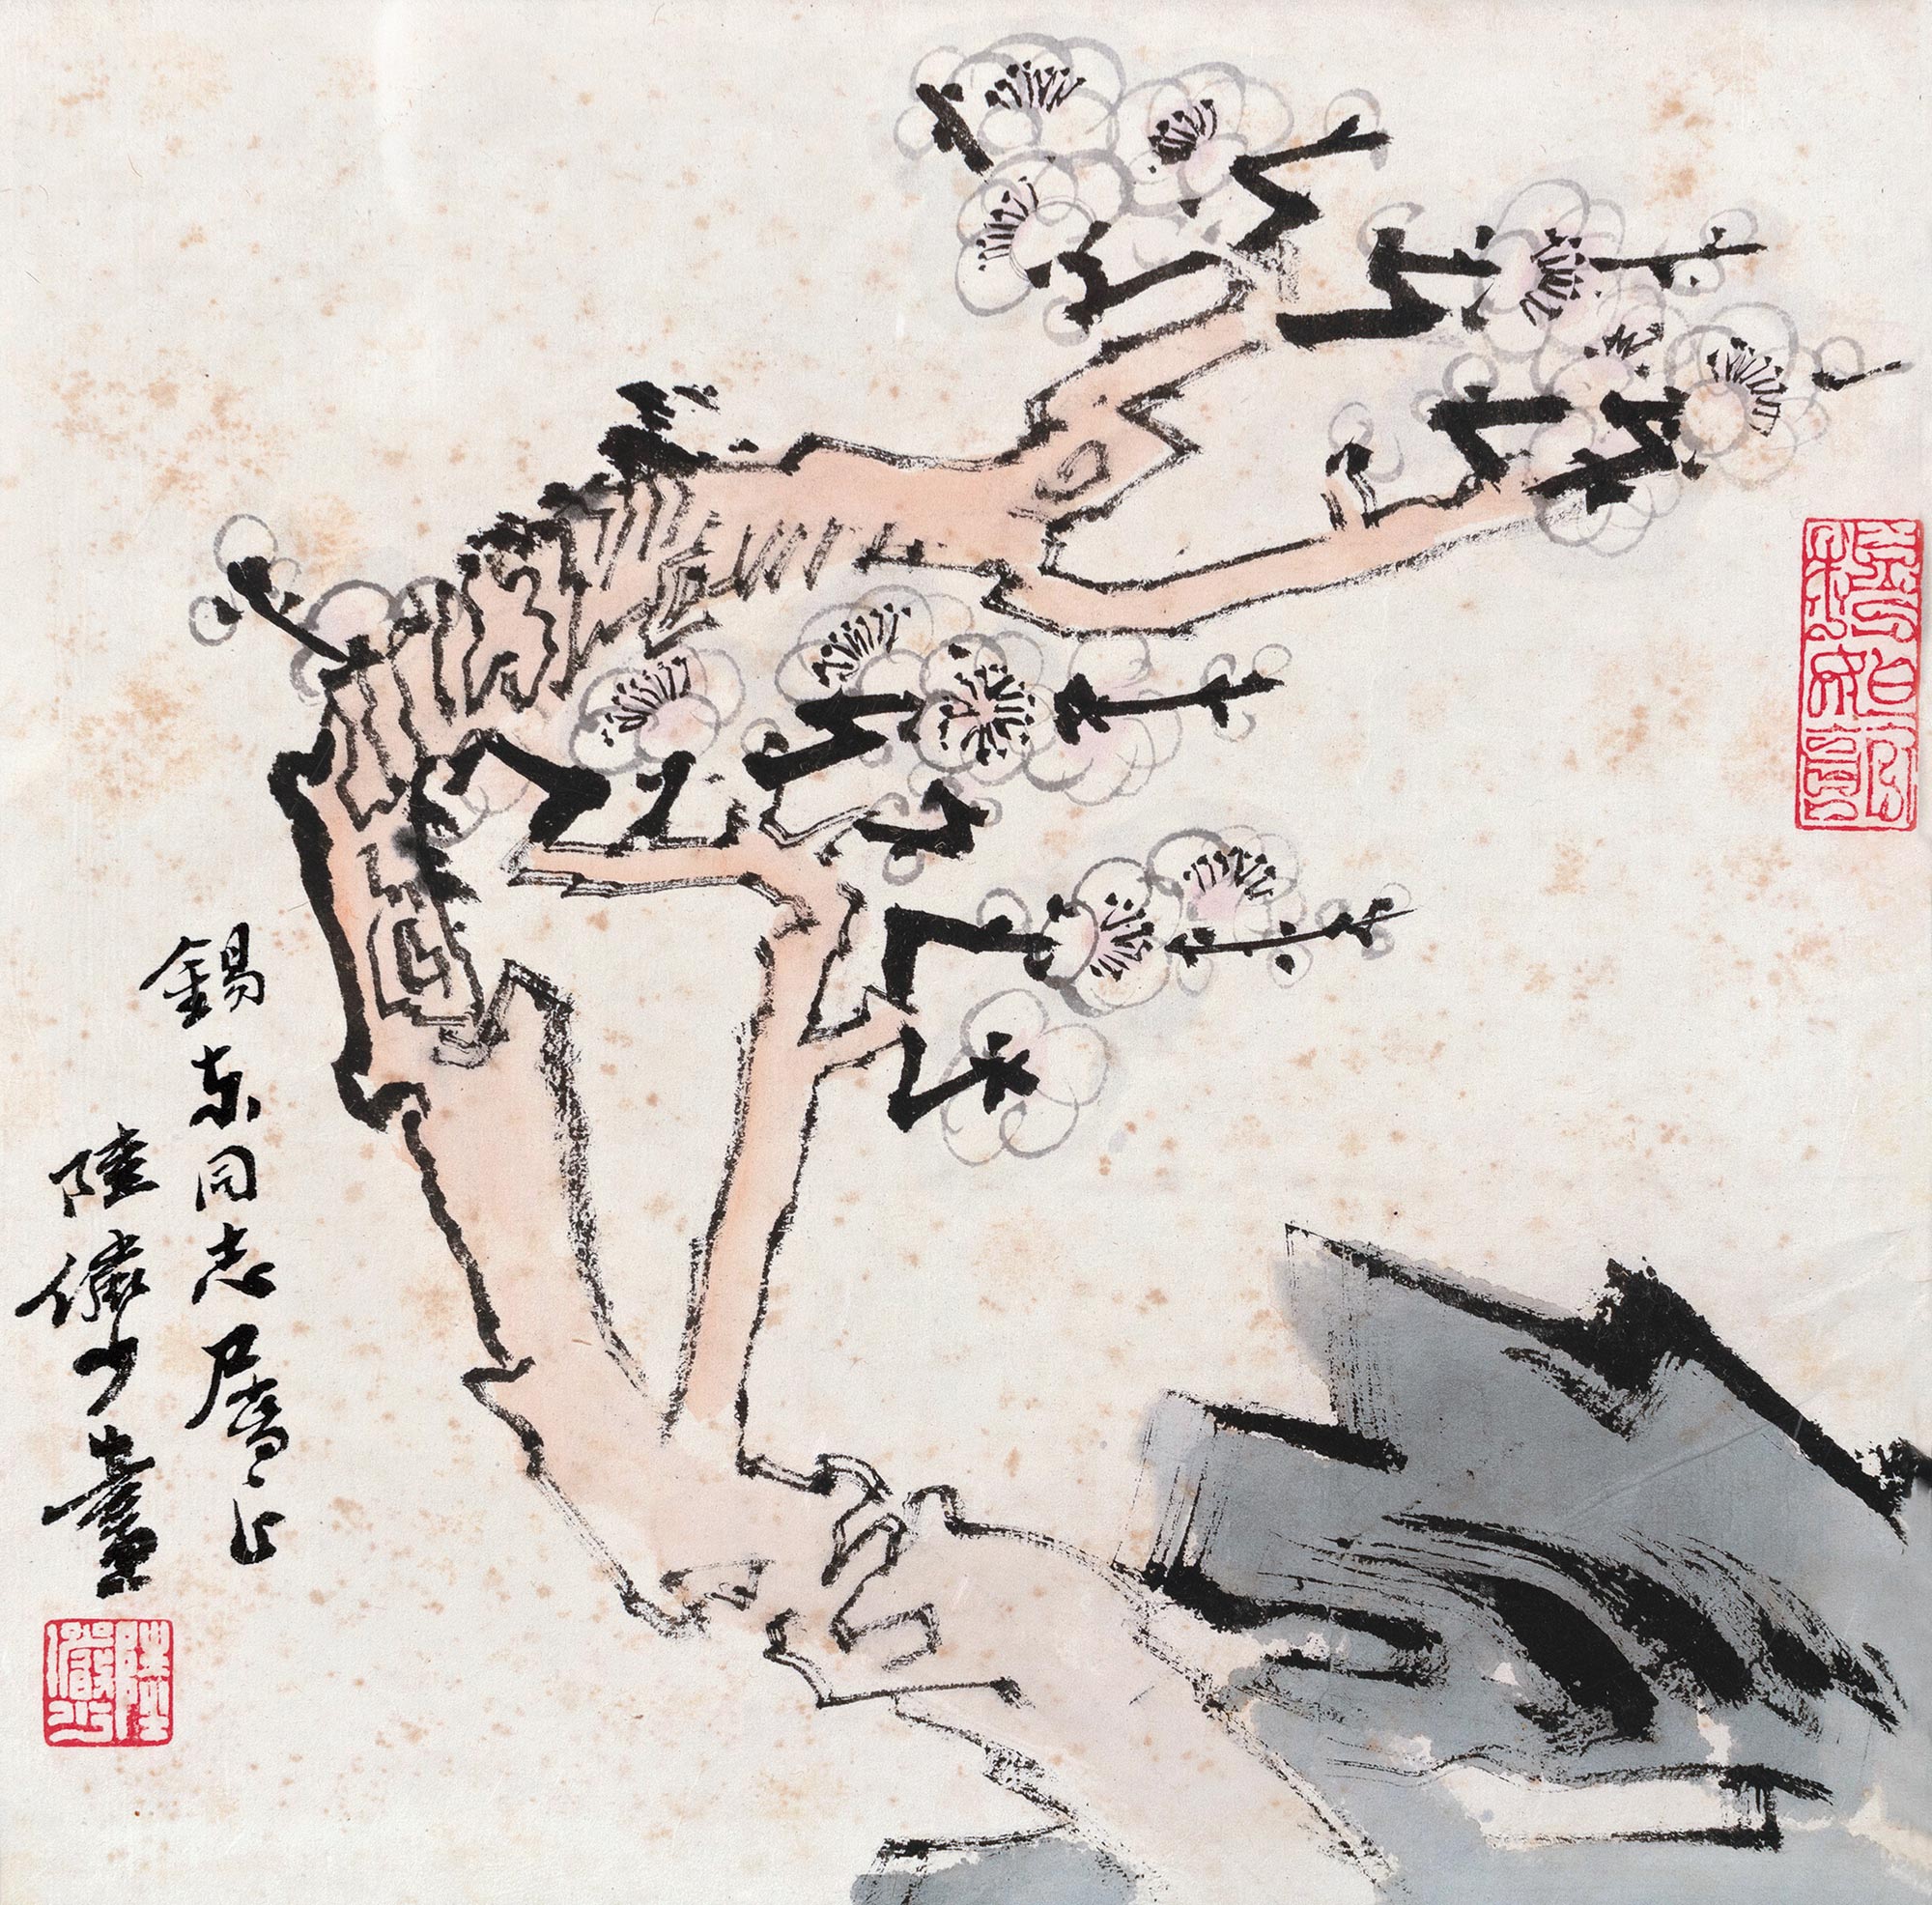 錫东同志屬正
陸儼少畫
陸儼少